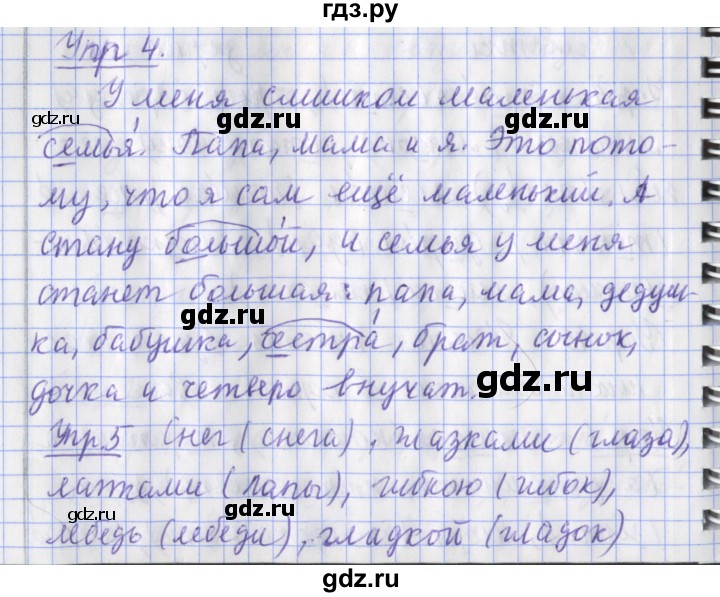 гдз.ру
Упр 4.
У меня слишком маленькая
семья. Папа, мама и я. Это пото-
му, что я сам ещё маленький. А
стану большой, и семья у меня
станет большая: папа, мама, дедуш-
ка, бабушка, сестра, брат, сынок,
дочка и четверо внучат.
Упр.5 Снег (снега), глазками (глаза),
лапками (лапы), гибкою (гибок),
лебедь (лебеди), гладкой (гладок)
gdz.ru
gdz.ru
gdz.ru
gdz.ru
gdz.ru
gdz.ru
gdz.ru
gdz.ru
gdz.ru